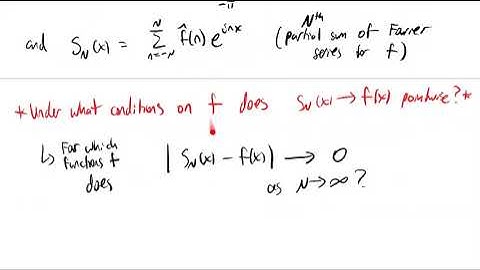 -π
and S_N(x) = Σ_{n=-N}^{N} f̂(n) e^{inx} (Nth partial sum of Fourier series for f)
*Under what conditions on f does S_N(x) → f(x) pointwise?*
↳ For which functions f does | S_N(x) - f(x) | → 0 as N→∞ ?